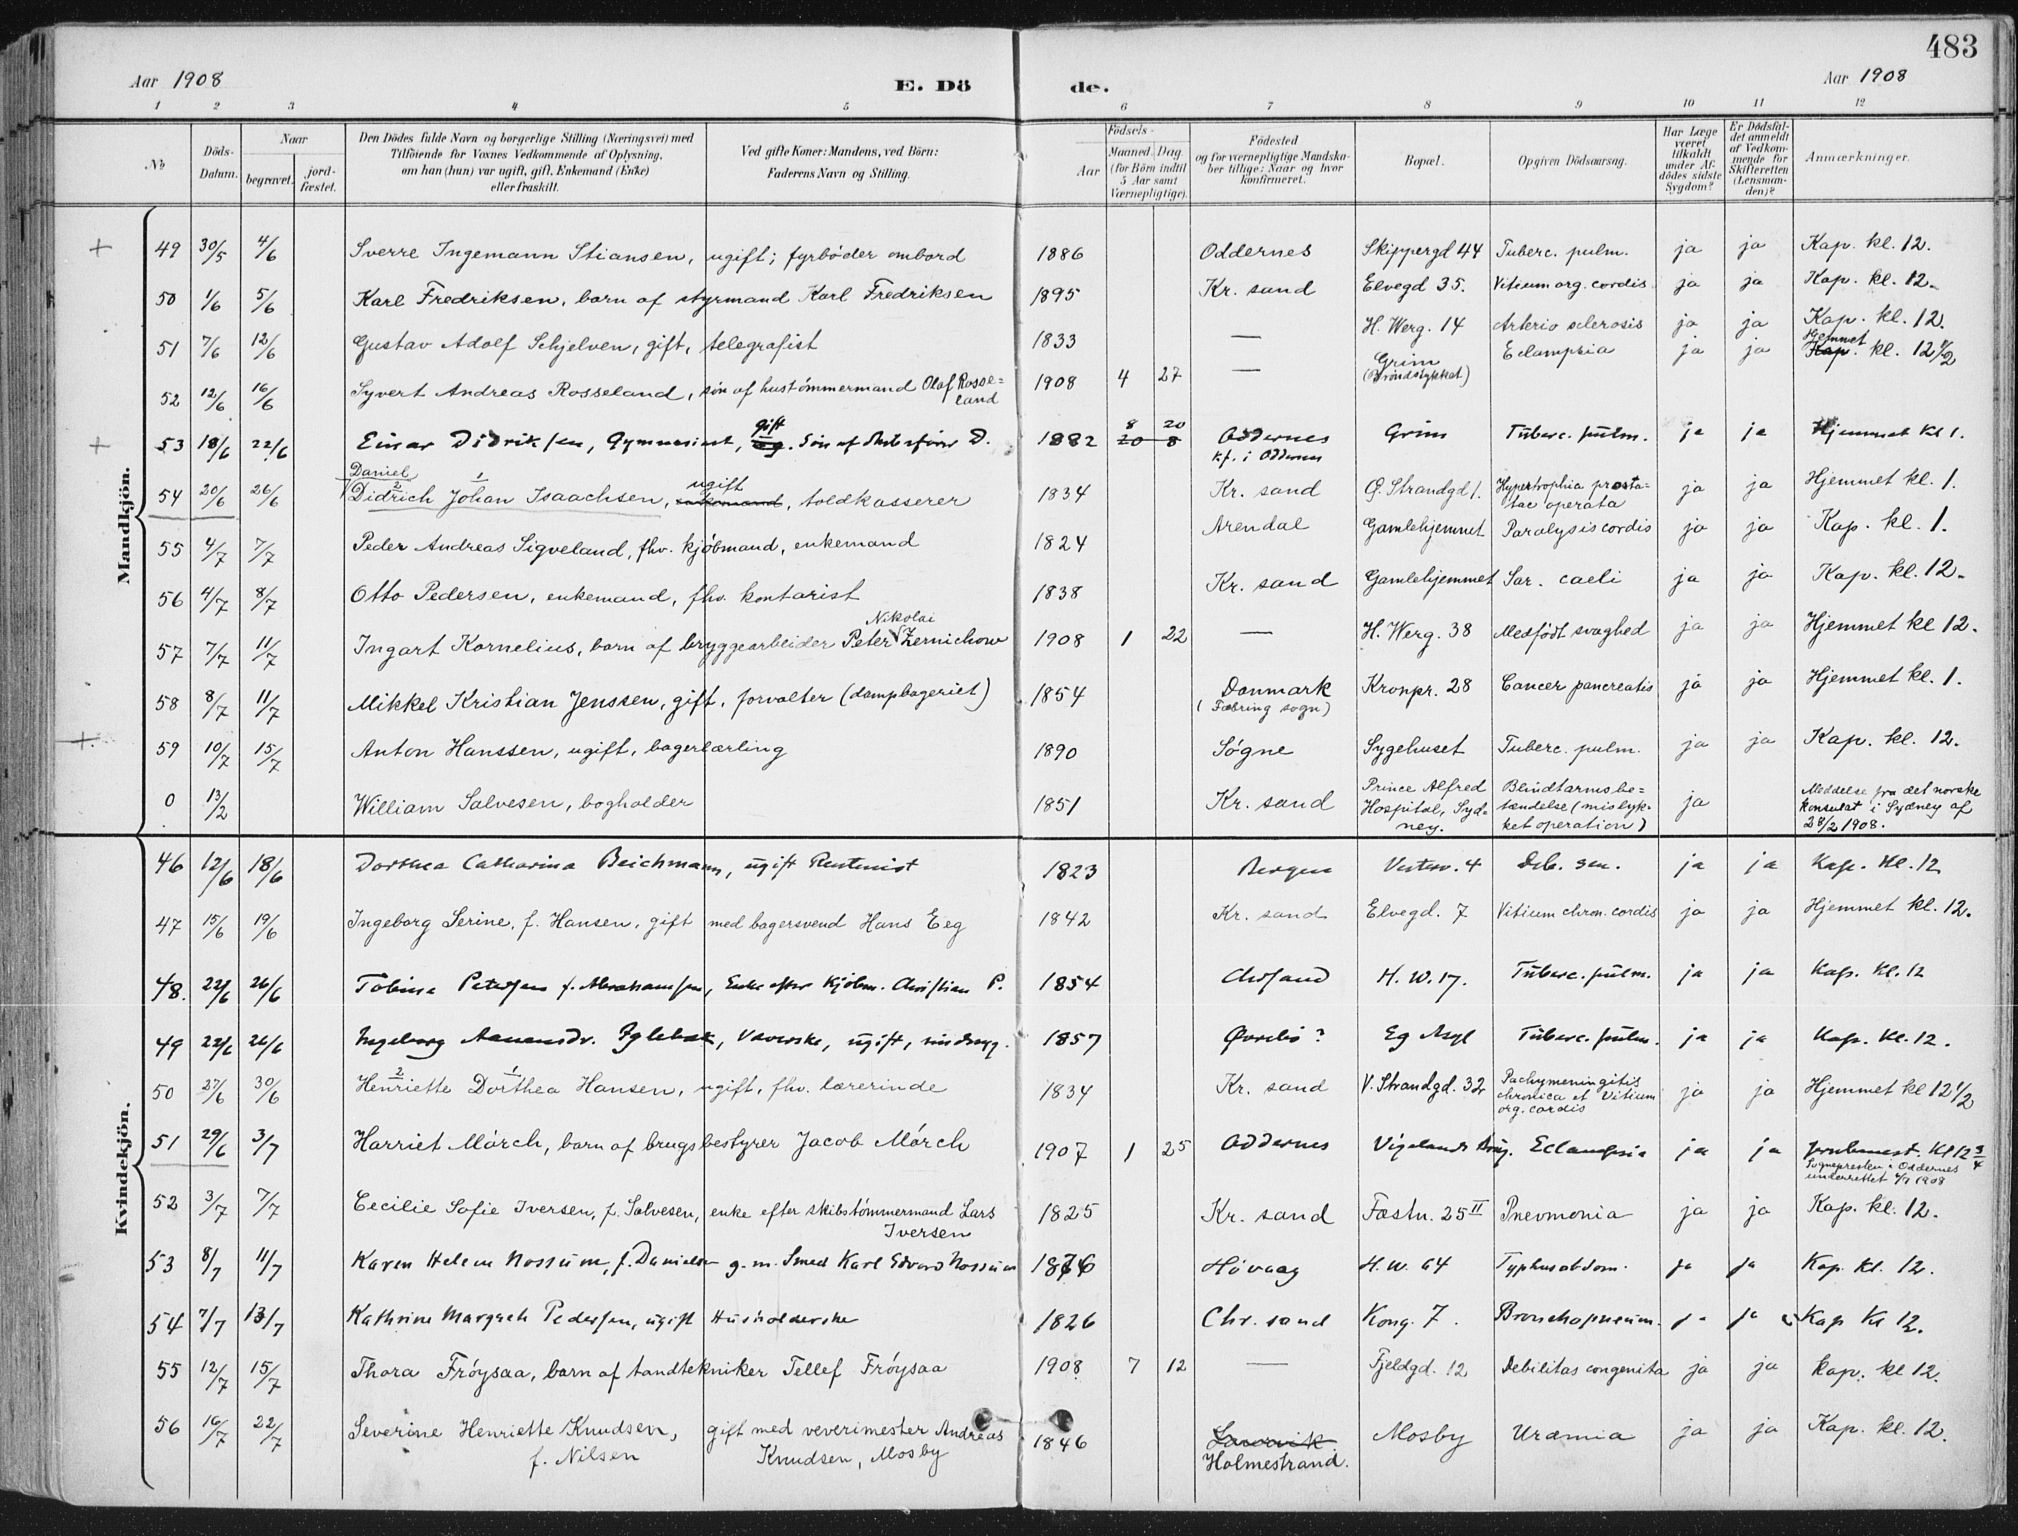 483
Aar 1908 E. Dö de. Aar 1908
1 2 3 4 5 6 7 8 9 10 11 12
No
Döds-Datum.
Naar
begravet. jordfæstet.
Den Dödes fulde Navn og borgerlige Stilling (Næringsvei) med
Tilföiende for Voxnes Vedkommende af Oplysning,
om han (hun) var ugift, gift, Enkemand (Enke)
eller fraskilt.
Ved gifte Koner: Mandens, ved Börn:
Faderens Navn og Stilling.
Födsels-
Aar Maaned. Dag
(for Börn indtil
5 Aar samt
Værnepligtige).
Födested
og for værnepligtige Mandska-
ber tillige: Naar og hvor
konfirmeret.
Bopæl.
Opgiven Dödsaarsag.
Har Læge
været
tilkaldt
under Af-
dödes sidste
Sygdom?
Er Dödsfal-
det anmeldt
af Vedkom-
mende for
Skifteretten
(Lensman-
den)?
Anmærkninger.
Mandkjön.
+ 49 30/5 4/6 Sverre Ingemann Stiansen, ugift; fyrbøder ombord 1886 Oddernes Skippergd 44 Tuberc. pulm. ja ja Kap. kl. 12.
50 1/6 5/6 Karl Fredriksen, barn af styrmand Karl Fredriksen 1895 Kr. sand Elvegd 35. Vitium org. cordis ja ja Kap. kl. 12.
51 7/6 12/6 Gustav Adolf Schjelven, gift, telegrafist 1833 — H. Werg. 14 Arterio sclerosis ja ja Kap. kl. 12.
52 12/6 16/6 Syvert Andreas Rosseland, søn af hustømmermand Olaf Rosse=
land 1908 4 27 — Grim
(Brøndstykket) Eclampsia ja ja Hjemmet
Kap. kl. 12 1/2
+ 53 18/6 22/6 Einar Didriksen, Gymnasiast, gift
ug. Søn af Skibsfører D. 1882 8 20
20 8 Oddernes
kf. i Oddernes Grim Tuberc. pulm. ja ja Hjemmet Kl 1.
54 20/6 26/6 Daniel
2 1
Didrich Johan Isaachsen, ugift
enkemand, toldkasserer 1834 Kr. sand Ø. Strandgd 1. Hypertrophia prosta=
tae operata ja ja Hjemmet kl. 1.
55 4/7 7/7 Peder Andreas Sigveland, fhv. kjøbmand, enkemand 1824 Arendal Gamlehjemmet Paralysis cordis ja ja Kap. kl. 1.
56 4/7 8/7 Otto Pedersen, enkemand, fhv. kontorist 1838 Kr. sand Gamlehjemmet Sar. caeli ja ja Kap. kl. 12.
57 7/7 11/7 Nikolai
Ingart Kornelius, barn af bryggearbeider Peter Zernichow 1908 1 22 — H. Werg. 38 Medfødt svaghed ja ja Hjemmet kl 12.
58 8/7 11/7 Mikkel Kristian Jenssen, gift, forvalter (dampbageriet) 1854 Danmark
(Fabring sogn) Kronpr. 28 Cancer pancreatis ja ja Hjemmet kl. 1.
+. 59 10/7 15/7 Anton Hanssen, ugift, bagerlærling 1890 Søgne Sygehuset Tuberc. pulm. ja ja Kap. kl. 12.
0 13/2 William Salvesen, bogholder 1851 Kr. sand Prince Alfred
Hospital, Syd=
ney. Blindtarmsbe=
tændelse (mislyk=
ket operation) ja Meddelse fra det norske
konsulat i Sydney af
28/2 1908.
Kvindekjön.
46 12/6 18/6 Dorthea Catharina Beichmann, ugift Rentenist 1823 Bergen Vesterv. 4 Deb. sen. ja ja Kap. Kl. 12
47 15/6 19/6 Ingeborg Serine, f. Hansen, gift med bagersvend Hans Eeg 1842 Kr. sand Elvegd. 7 Vitium chron. cordis ja ja Hjemmet kl. 12.
48. 22/6 26/6 Tobine Petersen f. Abrahamsen, Enke efter Kjøbm. Christian P. 1854 Chrsand H. W. 17. Tuberc. pulm. ja ja Kap. Kl. 12
49 22/6 26/6 Ingeborg Aanensdr. Iglebæk, Væverske, ugift, sindssyg. 1857 Øvrebø? Eg Asyl Tuberc. pulm. ja ja Kap. Kl. 12.
50 27/6 30/6 2 1
Henriette Dorthea Hansen, ugift, fhv. lærerinde 1834 Kr. sand V. Strandgd. 32 Pachymeningitis
chronica et Vitium
org. cordis ja ja Hjemmet kl 12 1/2
51 29/6 3/7 Harriet Mørch, barn af brugsbestyrer Jacob Mørch 1907 1 25 Oddernes Vigelands Brug. Eclampsia ja ja Jernbanest. Kl 12 3/4
Sognepresten i Oddernes
underrettet 4/7 1908
52 3/7 7/7 Cecilie Sofie Iversen, f. Salvesen, enke efter skibstømmermand Lars
Iversen 1825 Kr. sand Fæstn. 25 II Pnevmonia ja ja Kap. kl. 12.
53 8/7 11/7 Karen Helene Nossum, f. Danielsen g. m. Smed Karl Edvard Nossum 1876 Høvaag H. W. 64 Typhus abdom. ja ja Kap. Kl. 12.
54 7/7 13/7 Kathrine Margreth Pedersen, ugift Husholderske 1826 Chr. sand Kong. 7. Bronchopneum. ja ja Kap Kl 12.
55 12/7 15/7 Thora Frøysaa, barn af tandtekniker Tellef Frøysaa 1908 7 12 — Fjeldgd. 12 Debilitas congenita ja ja Kap. kl 12.
56 16/7 22/7 Severine Henriette Knudsen, gift med veverimester Andreas
f. Nilsen Knudsen, Mosby 1846 Laurvik
Holmestrand. Mosby Uræmia ja ja Kap. kl. 12.